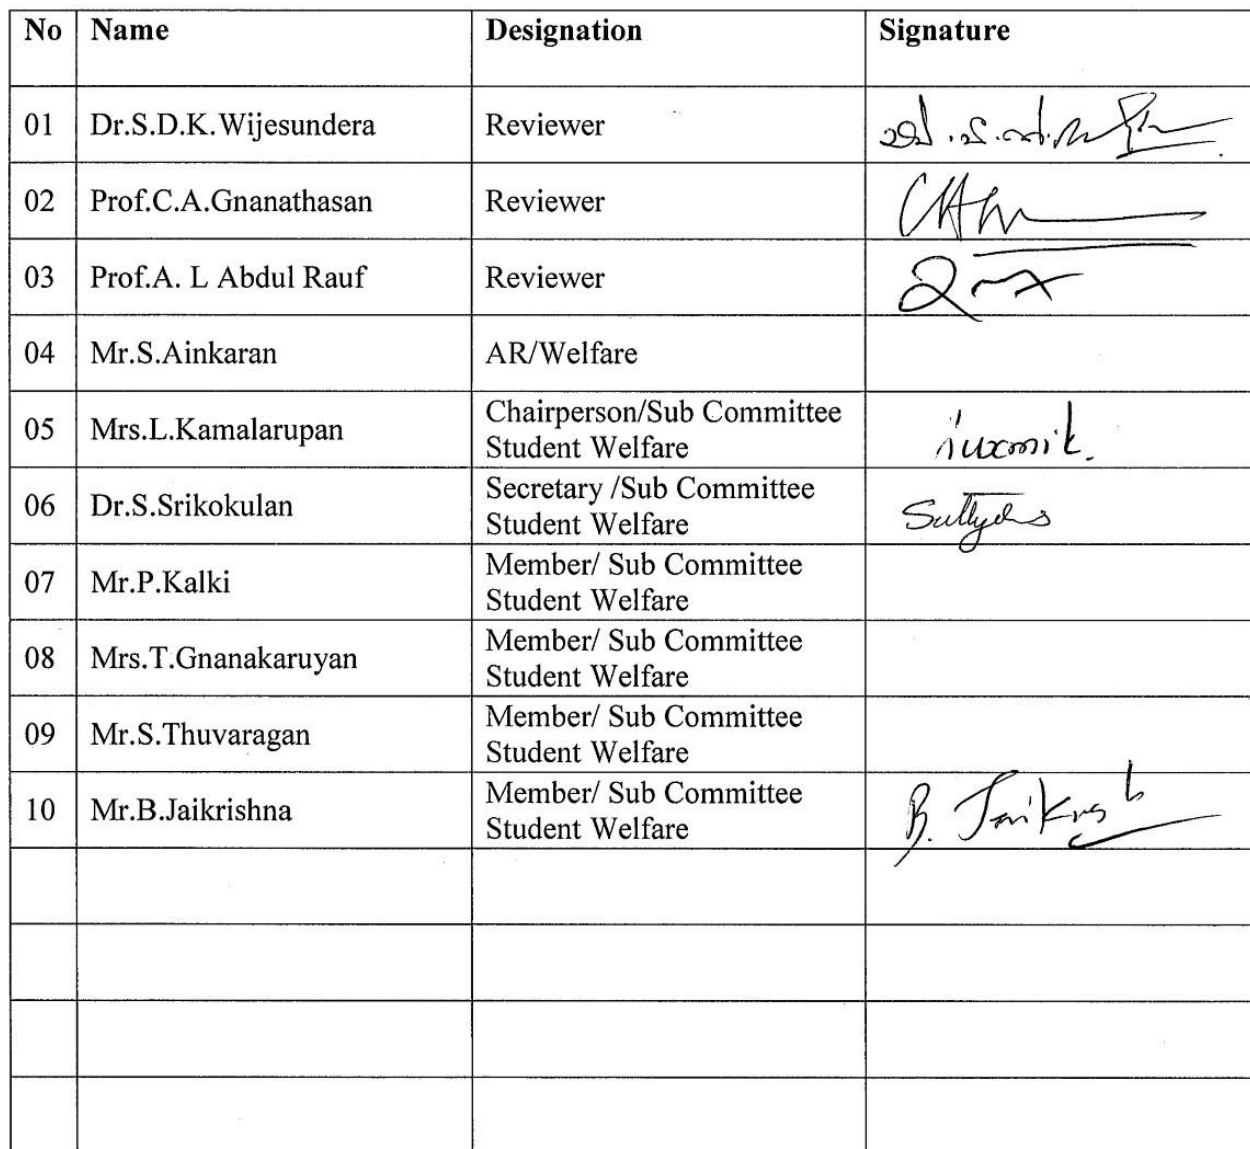 No Name Designation Signature
01 Dr.S.D.K.Wijesundera Reviewer
02 Prof.C.A.Gnanathasan Reviewer
03 Prof.A. L Abdul Rauf Reviewer
04 Mr.S.Ainkaran AR/Welfare
05 Mrs.L.Kamalarupan Chairperson/Sub Committee
Student Welfare
06 Dr.S.Srikokulan Secretary /Sub Committee
Student Welfare
07 Mr.P.Kalki Member/ Sub Committee
Student Welfare
08 Mrs.T.Gnanakaruyan Member/ Sub Committee
Student Welfare
09 Mr.S.Thuvaragan Member/ Sub Committee
Student Welfare
10 Mr.B.Jaikrishna Member/ Sub Committee B.
Student Welfare